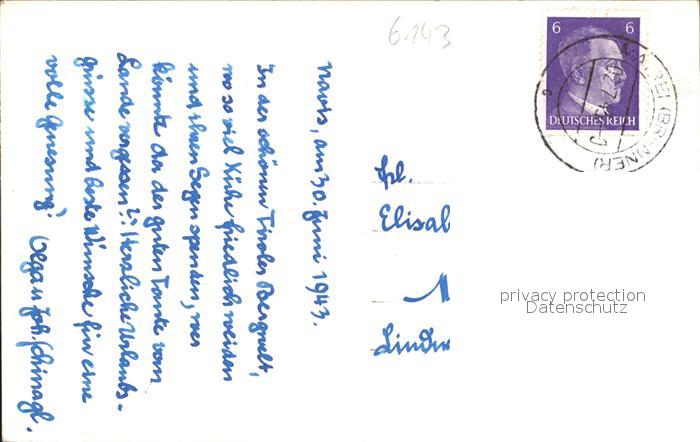 6.143
6 6
DEUTSCHES REICH
(BRENNER)
Navis, am 30. Juni 1943.
In der schönen Tiroler Bergwelt,
wo so viel Kühe friedlich weiden
und ihren Segen spenden, wer
könnte da der guten Tante vom
Lande vergessen?: Herzliche Urlaubs-
grüsse und beste Wünsche für eine
volle Genesung! Joh. Schinagl.
Frl.
Elisab
M
Linde
privacy protection
Datenschutz